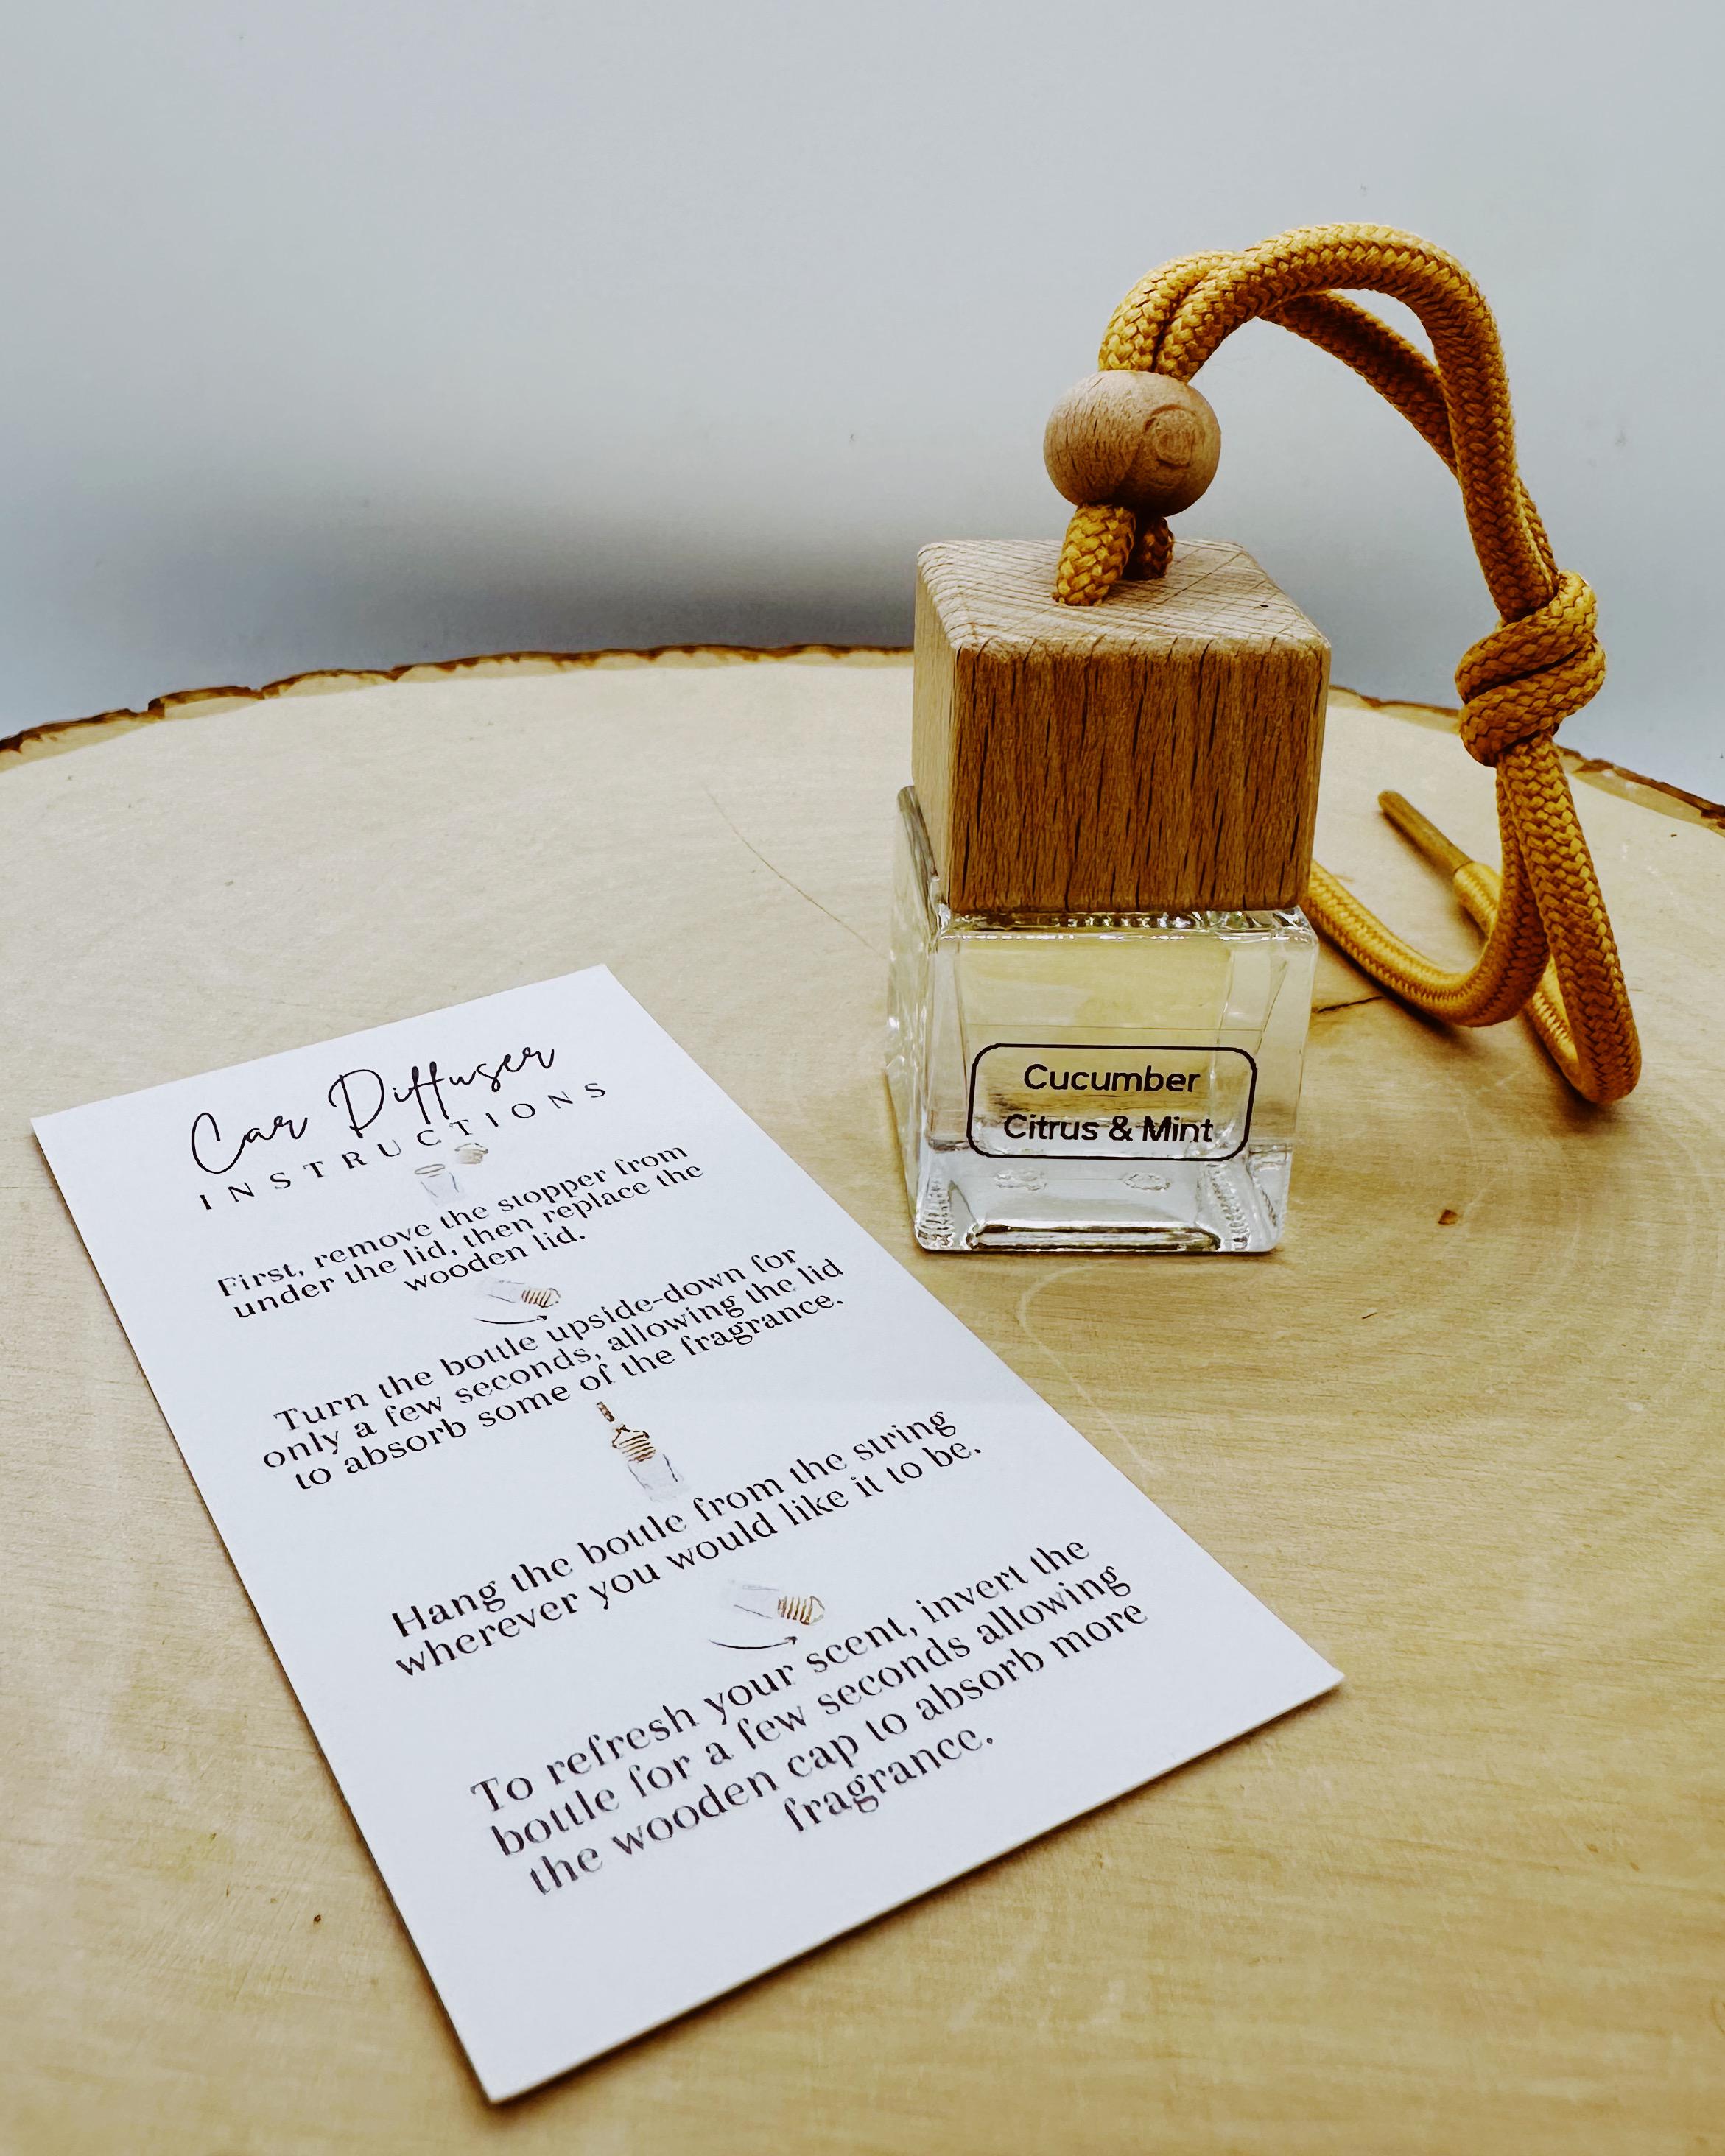 Car Diffuser
INSTRUCTIONS
First, remove the stopper from
under the lid, then replace the
wooden lid.
Turn the bottle upside-down for
only a few seconds, allowing the lid
to absorb some of the fragrance.
Hang the bottle from the string
wherever you would like it to be.
To refresh your scent, invert the
bottle for a few seconds allowing
the wooden cap to absorb more
fragrance.
Cucumber
Citrus & Mint